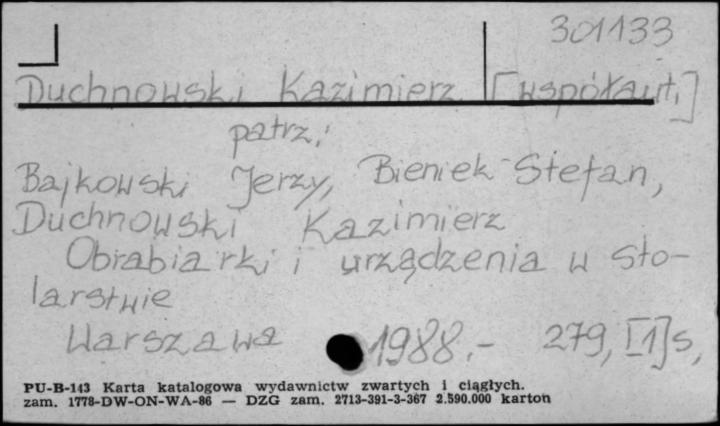 301133
Duchnowski Kazimierz [współaut.]
patrz:
Bajkowski Jerzy, Bieniek Stefan,
Duchnowski Kazimierz
Obrabiarki i urządzenia w sto-
larstwie
Warszawa 1988.- 279, [1]s,
PU-B-143 Karta katalogowa wydawnictw zwartych i ciągłych.
zam. 1778-DW-ON-WA-86 — DZG zam. 2713-391-3-367 2.590.000 karton